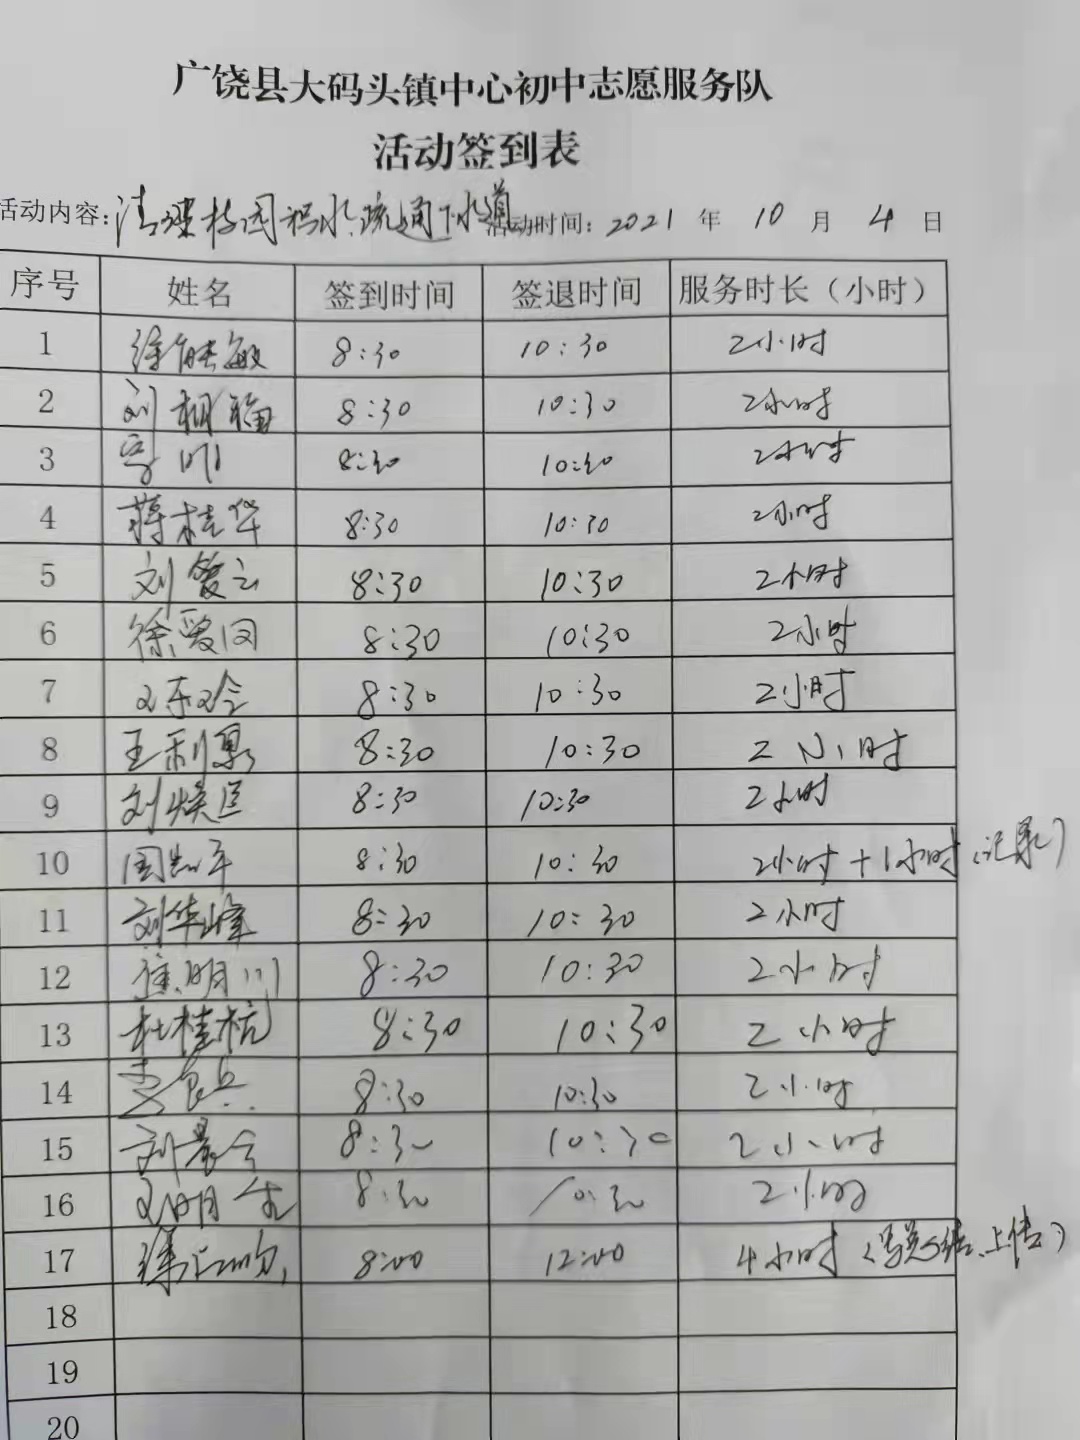 广饶县大码头镇中心初中志愿服务队
活动签到表
活动内容：清理校园积水、疏通下水道 活动时间：2021 年 10 月 4 日
序号 姓名 签到时间 签退时间 服务时长（小时）
1 徐 敏 8:30 10:30 2小时
2 刘相福 8:30 10:30 2小时
3 8:30 10:30 2小时
4 蒋桂华 8:30 10:30 2小时
5 刘爱云 8:30 10:30 2小时
6 徐爱国 8:30 10:30 2小时
7 8:30 10:30 2小时
8 王利 8:30 10:30 2小时
9 刘焕 8:30 10:30 2小时
10 周 军 8:30 10:30 2小时+1小时（记录）
11 刘华峰 8:30 10:30 2小时
12 明川 8:30 10:30 2小时
13 杜桂杭 8:30 10:30 2小时
14 李良兵 8:30 10:30 2小时
15 刘 8:30 10:30 2小时
16 刘明 8:30 10:30 2小时
17 8:00 12:00 4小时（写总结、上传）
18
19
20